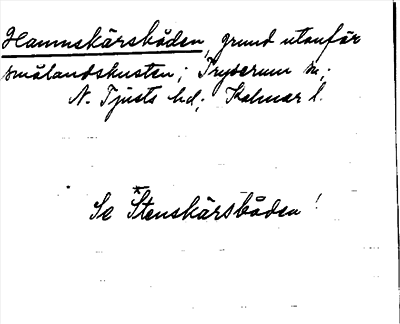 Hamnskärsbåden, grund utanför
smålandskusten; Tryserum sn;
N. Tjusts hd; Kalmar l.
Se *Stenskärsbåden!